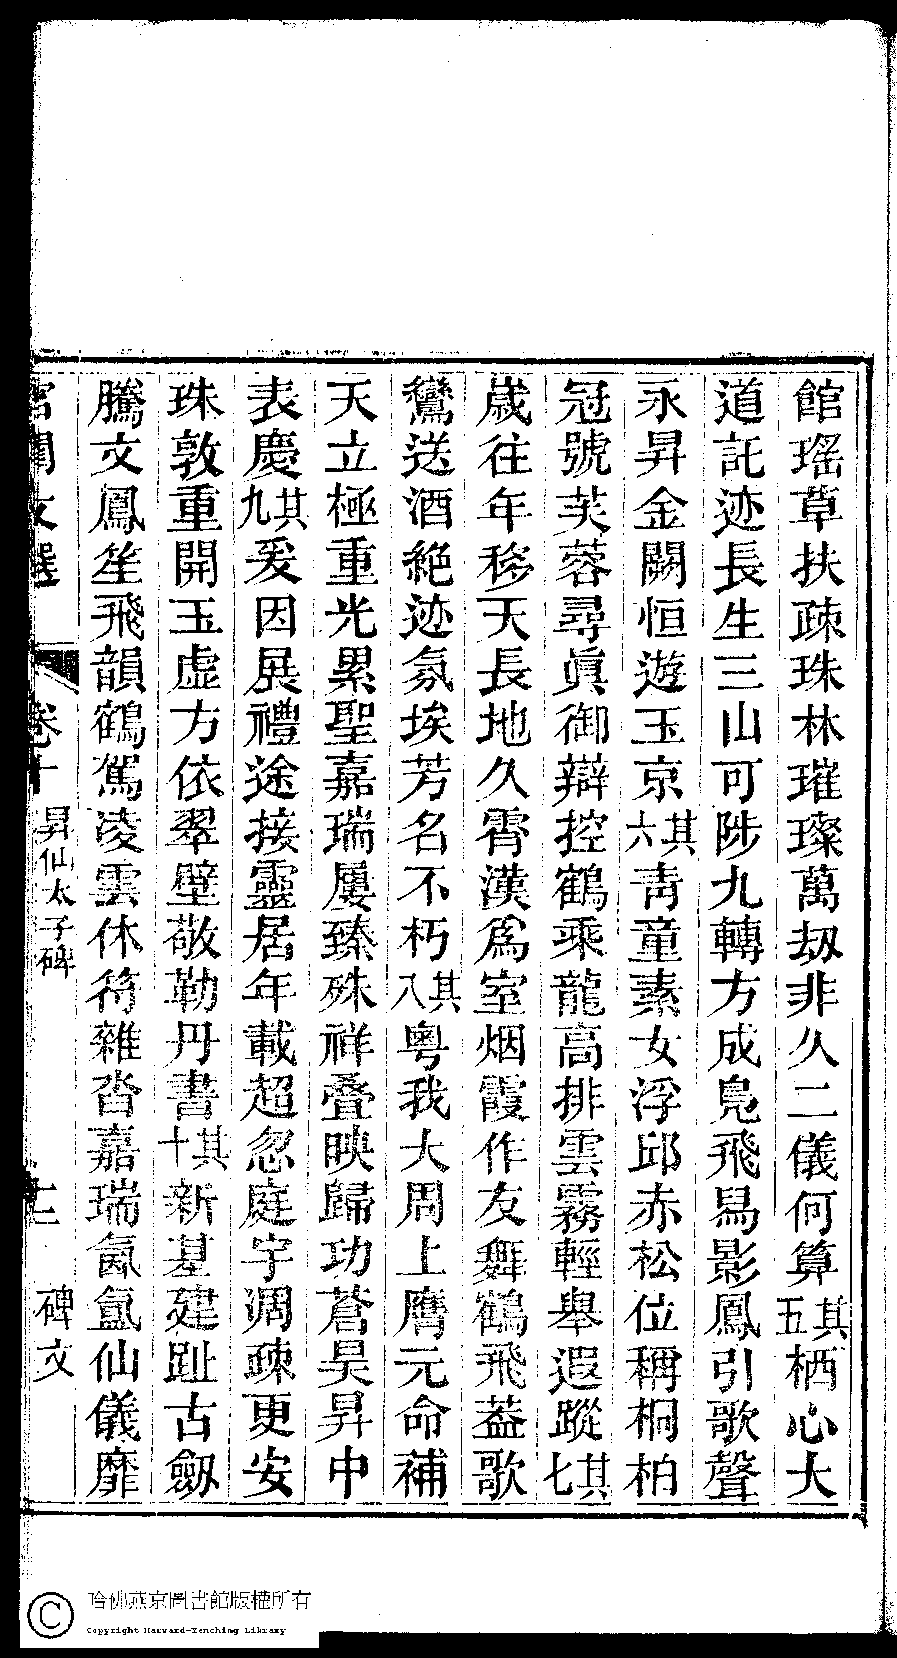 館瑤草扶疎珠林璀璨萬刼非久二儀何算其五栖心大
道託迹長生三山可陟九轉方成鳧飛舄影鳳引歌聲
永昇金闕恒遊玉京其六靑童素女浮邱赤松位稱桐柏
冠號芙蓉尋眞御辯控鶴乘龍高排雲霧輕舉遐蹤其七
歲往年移天長地久霄漢爲室烟霞作友舞鶴飛葢歌
鸞送酒絶迹氛埃芳名不朽其八粤我大周上膺元命補
天立極重光累聖嘉瑞屢臻殊祥疊映歸功蒼昊昇中
表慶其九爰因展禮途接靈居年載超忽庭宇凋疎更安
珠敦重開玉虛方依翠壁敬勒丹書其十新基建趾古劒
騰文鳳笙飛韻鶴駕凌雲休符雜沓嘉瑞氤氲仙儀靡
宮閨文選 卷十 昇仙太子碑 十二 碑文
哈佛燕京圖書館版權所有
Copyright Harvard-Yenching Library